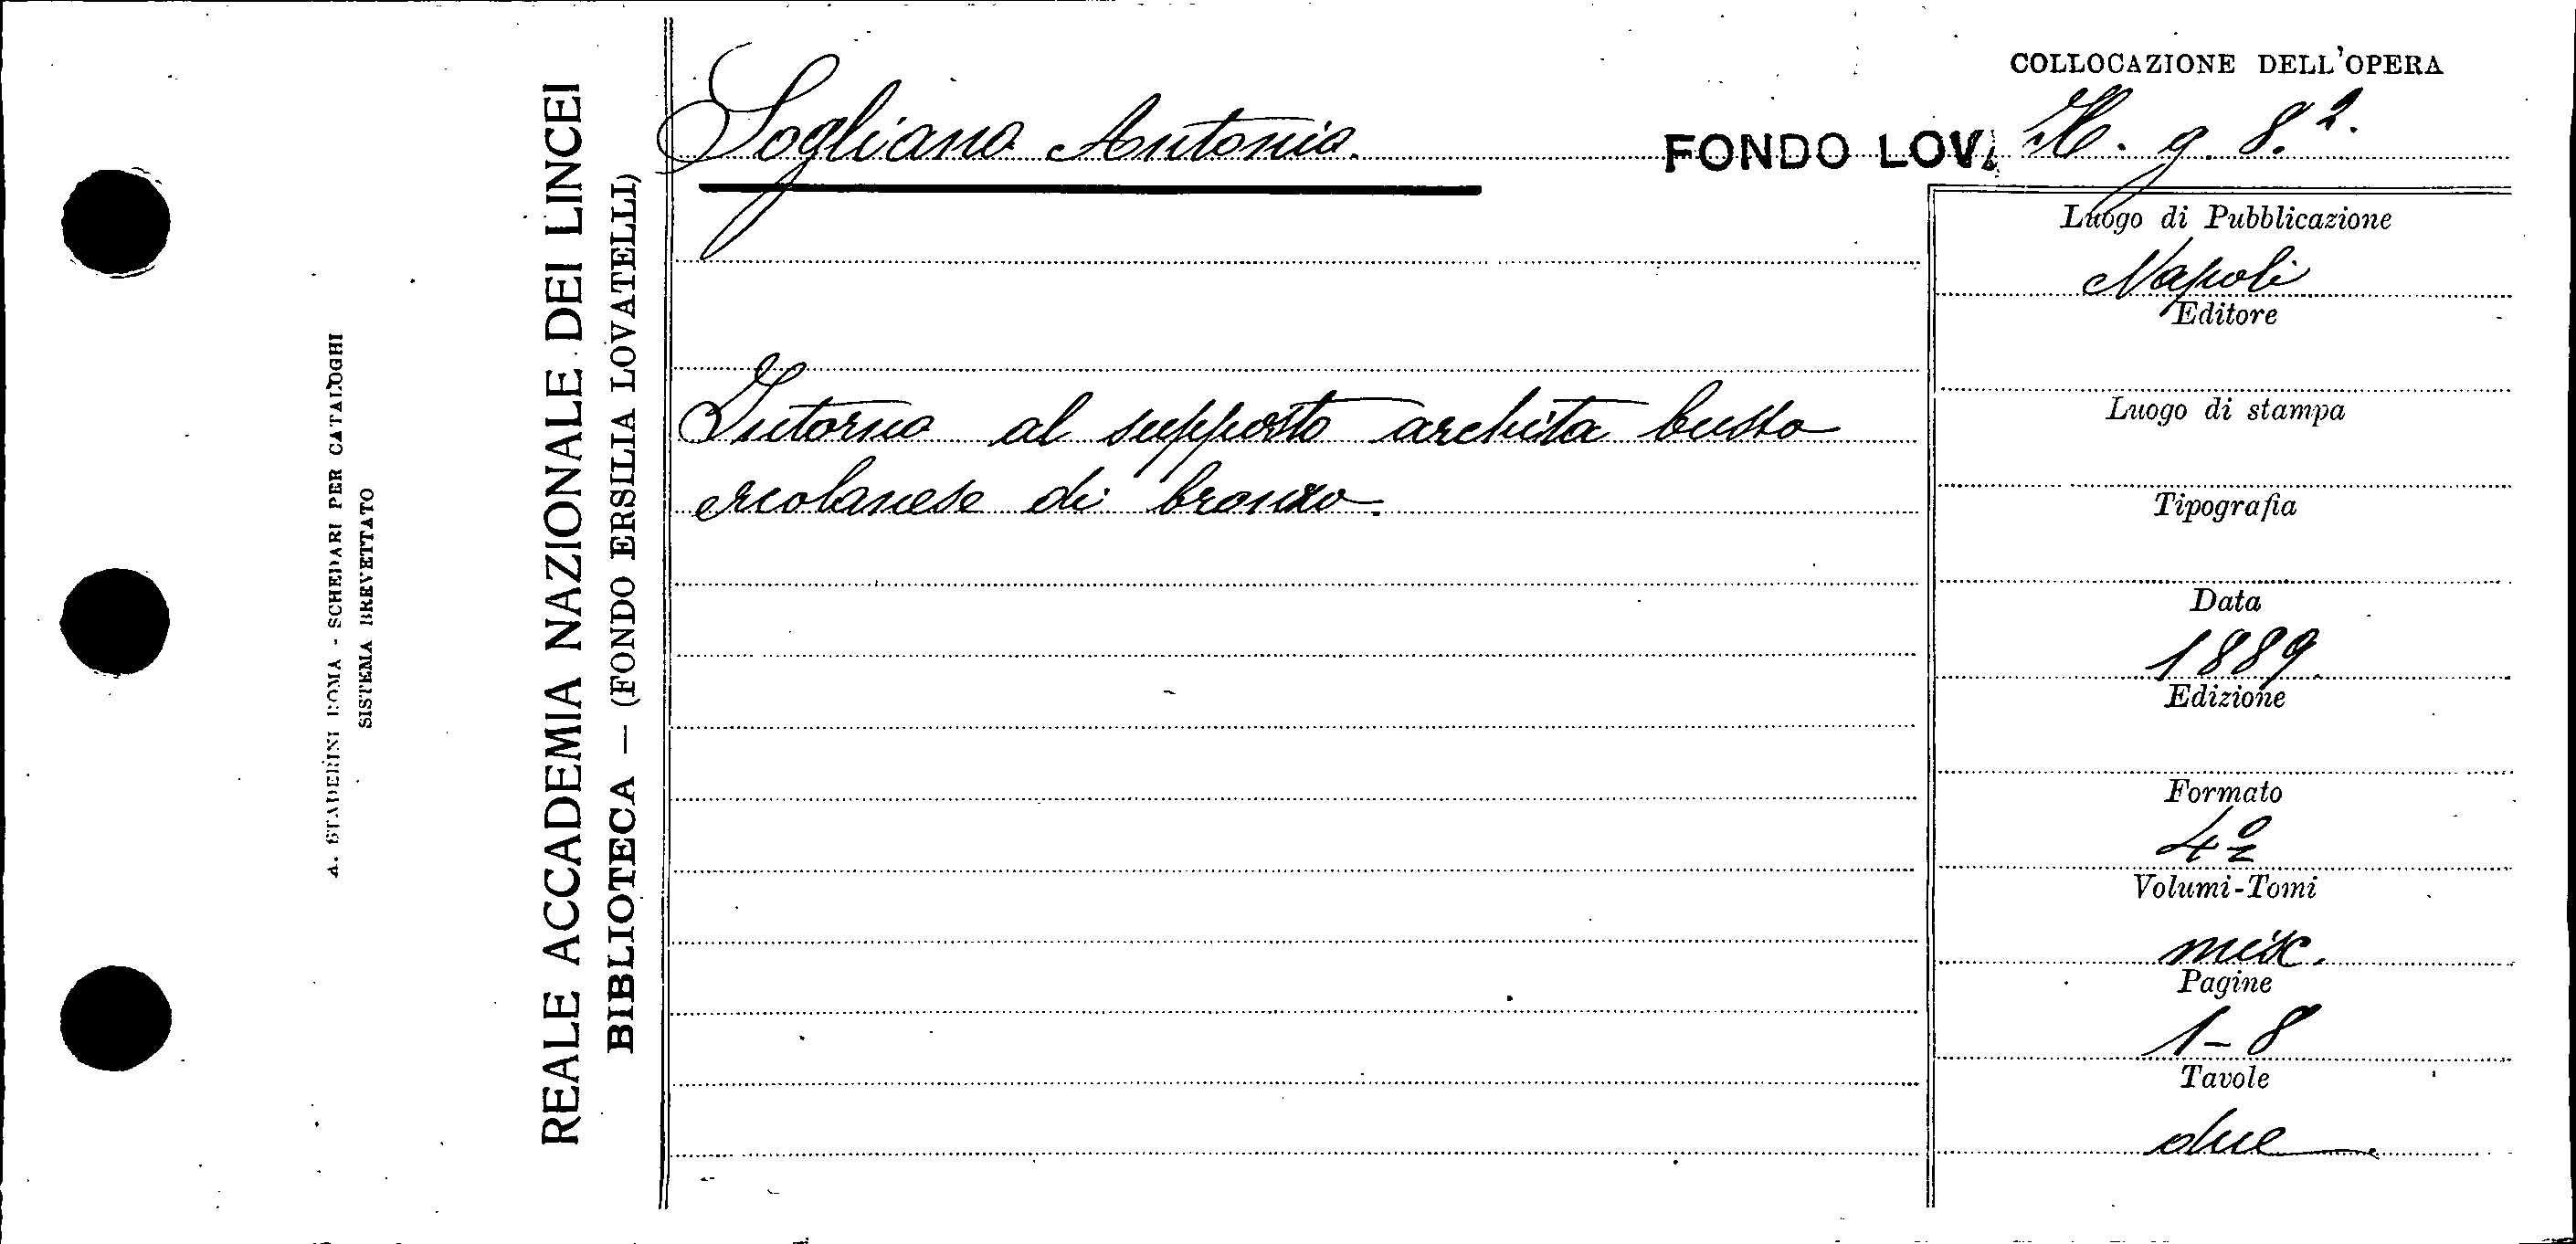 A. STADERINI ROMA - SCHEDARI PER CATALOGHI
SISTEMA BREVETTATO
REALE ACCADEMIA NAZIONALE DEI LINCEI
BIBLIOTECA — (FONDO ERSILIA LOVATELLI)
Sogliano Antonio.
FONDO LOV.
Intorno al supposto archita busto
ercolanese di bronzo.
COLLOCAZIONE DELL'OPERA
g. 8.2.
Luogo di Pubblicazione
Napoli
Editore
Luogo di stampa
Tipografia
Data
1889.
Edizione
Formato
4º
Volumi-Tomi
Pagine
1-8
Tavole
due